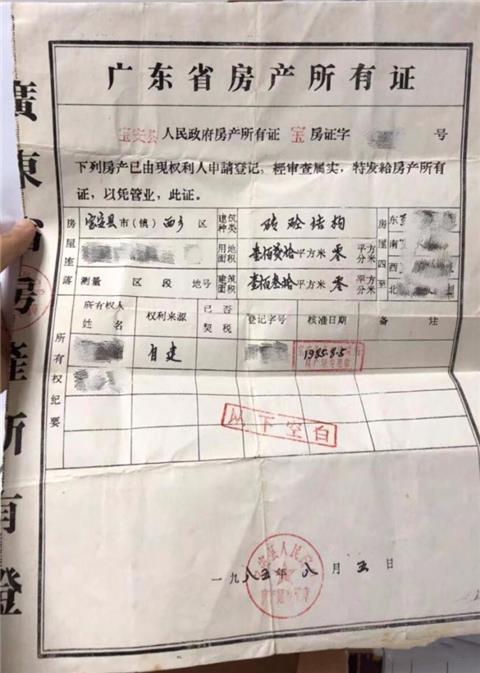 廣東省房産所有證
广东省房产所有证
宝安县人民政府房产所有证 宝房证字 号
下列房产已由现权利人申請登记，經审查属实，特发給房产所有
证，以凭管业，此证。
房屋座落 宝安县市（镇）西乡区 建筑种类 砖砼结构 房屋四至 东
用地面积 平方米零平方分米 南 西
测量 区段 地号 建筑面积 壹佰叁拾平方米零平方分米 北
所有权纪要 所有权人姓名 权利来源 已否契税 登记字号 核准日期 备注
自建 1985.8.5
以下空白
一九八五年八月五日